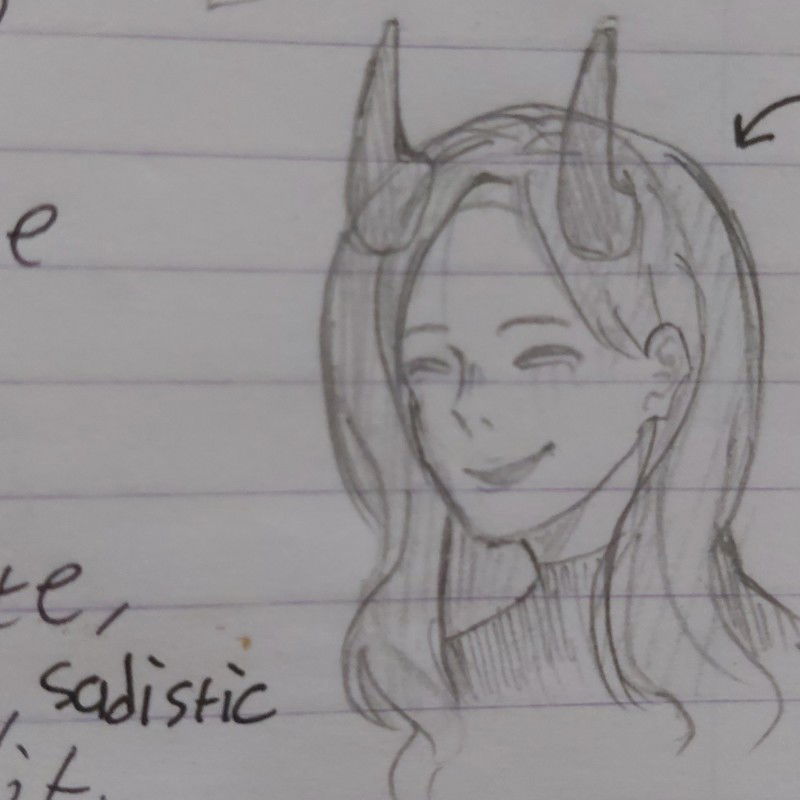 e
te,
, sadistic
it.